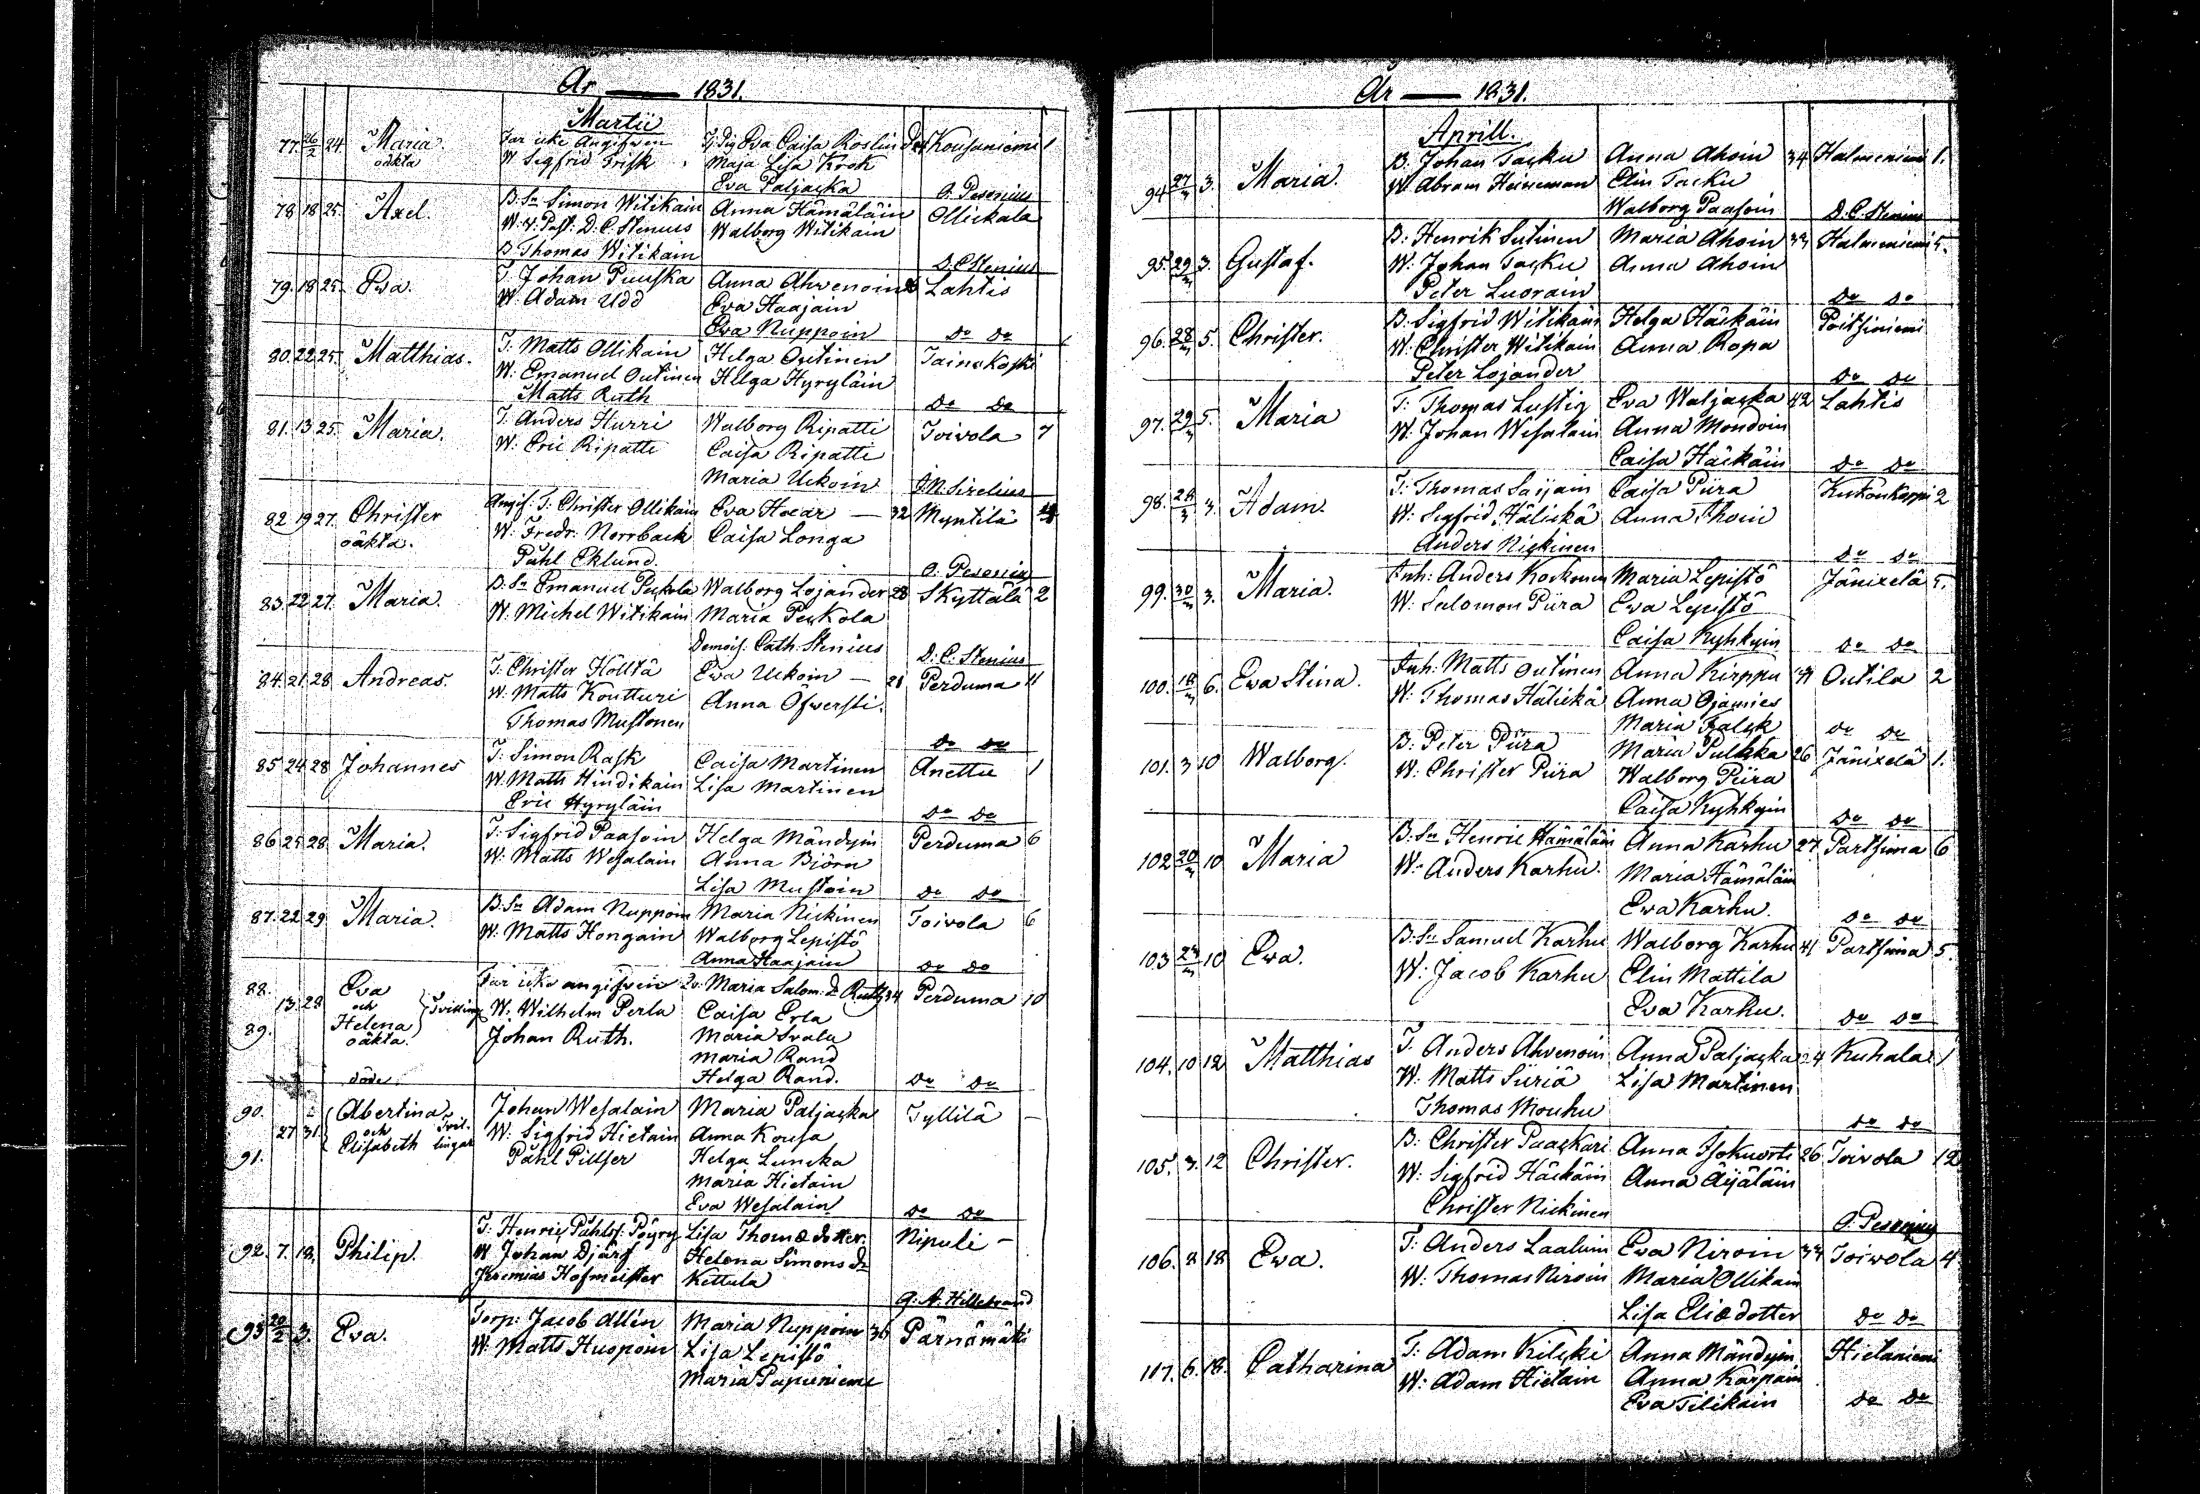 År — 1831.
Martii
77. 26/2 24. Maria Far icke Angifven Eva Caisa Roslin Kousaniemi 1
oäkta W Sigfrid Frisk Maja Lisa Krok
Eva Paljacka O. Pesonius
78 18 25. Axel. B. Sn Simon Witikain Anna Hämäläin Ollickala
W. v. Past: D. C. Stenius Walborg Witikain
B. Thomas Witikain D. C. Stenius
79. 18 25. Eva. T. Johan Puuska Anna Ahvenoin Lahtis
W. Adam Udd Eva Haajain
Eva Nuppoin Do Do
80. 22 25. Matthias. T. Matts Ollikain Helga Outinen Tainakoski
W: Emanuel Outinen Helga Hyryläin
Matts Ruth Do Do
81. 13 25. Maria. T. Anders Hurri Walborg Ripatti Toivola 7
W: Eric Ripatti Caisa Ripatti
Maria Uckoin Sirelius
82 19 27. Christer Angif: T. Christer Ollikain Eva Hocar — 32 Myntilä
oäkta. W. Fredr. Norrback Caisa Longa
Påhl Eklund. O. Pesonius
83. 22 27. Maria. B. Sn Emanuel Peckola Walborg Lojander 28 Skyttälä 2
W: Michel Witikain Maria Peckola
Demois: Cath. Stenius D: C: Stenius
84. 21 28 Andreas. T: Christer Hölttä Eva Uckoin — 21 Perduma 11
W: Matts Koutturi Anna Öfversti.
Thomas Mustonen Do Do
85 24 28 Johannes T: Simon Rask Caisa Martinen Anettu 1
W. Matts Hindikain Lisa Martinen
Eric Hyryläin Do Do
86 25 28. Maria. T: Sigfrid Paasoin Helga Mändyin Perduma 6
W: Matts Wesalain Anna Björn
Lisa Mustoin Do Do
87. 22 29 Maria. B. Sn Adam Nuppoin Maria Nickinen Toivola 6
W: Matts Hongain Walborg Lepistö
Anna Haajain Do Do
88. Eva Far icke angifven Maria Salom: D. Ruth 34 Perduma 10
13. 28 och W: Wilhelm Perla Caisa Erla
89. Helena Johan Ruth. Maria Svala
oäkta. Maria Rand
Helga Rand. Do Do
90. Abertina Johan Wesalain Maria Paljacka Tyllilä —
27 31 och W: Sigfrid Hietain Anna Kousa
91. Elisabeth Påhl Pillser Helga Luncka
Maria Hietain
Eva Wesalain Do Do
92. 7. 18. Philip. T: Henric Påhls: Pöyry Lisa Thomæ dotter. Nipuli —
W Johan Djärf Helena Simons dr
Jeremias Hofmeister Kettula G. A. Hillebrand
93 20/2 3. Eva. Torp: Jacob Allén Maria Nuppoin 36 Pärnämäki
W: Matts Huopoin Lisa Lepistö
Maria Tapunieme
År — 1831.
Aprill.
94 27/3 3. Maria. B: Johan Tacku Anna Ahoin 34 Halmeniemi 1.
W: Abram Heineman Elin Tacku
Walborg Paasoin D. C. Stenius
95. 29/3 3. Gustaf. B: Henrik Sutinen Maria Ahoin 33 Halmeniemi 5.
W: Johan Tacku Anna Ahoin
Peter Luorain Do Do
96. 28/3 5. Christer. B: Sigfrid Witikain Helga Häckäin Poitsiniemi
W: Christer Witikain Anna Ropa
Peter Lojander Do Do
97. 29/3 5. Maria T: Thomas Lustig Eva Waljacka 42 Lahtis
W: Johan Wesalain Anna Mondoin
Caisa Häckäin Do Do
98. 28/3 3. Adam. T: Thomas Saijain Caisa Piira 2
W: Sigfrid Hälickä Anna Ahoin
Anders Nickinen Do Do
99. 30/3 3. Maria. Inh: Anders Korhonen Maria Lepistö Jänixelä 5.
W: Salomon Piira Eva Lepistö
Caisa Kyhkyin Do Do
100. 18/3 6. Eva Stina. Inh: Matts Outinen Anna Kirppu Outila 2
W: Thomas Hälickä Anna Ojamies
Maria Falck Do Do
101. 3 10 Walborg. B: Peter Piira Maria Pulkka 26 Jänixelä 1.
W: Christer Piira Walborg Piira
Caisa Kyhkyin Do Do
102 20/3 10 Maria B. Sn Henric Hämäläin Anna Karhu 27 Partsima 6
W: Anders Karhu. Maria Hämäläin
Eva Karhu. Do Do
103 23/3 10 Eva. B: Sn Samuel Karhu Walborg Karhu 41 Partsima 5.
W: Jacob Karhu Elin Mattila
Eva Karhu. Do Do
104. 10 12 Matthias T. Anders Ahvenoin Anna Paljacka 24 Kuhala 1
W: Matts Siiriä Lisa Martinen
Thomas Mouhu Do Do
105. 3. 12 Christer. B: Christer Paackari Anna Isokuorti 26 Toivola 12
W: Sigfrid Häckäin Anna Äijäläin
Christer Nickinen O. Pesonius
106. 8 18 Eva. T: Anders Laaluin Eva Niroin 33 Toivola 4
W: Thomas Niroin Maria Ollikain
Lisa Eliæ dotter Do Do
107. 6. 18. Catharina T: Adam Kilcki Anna Mändyin Hietaniemi
W: Adam Hietain Anna Karpain
Eva Tilikäin Do Do